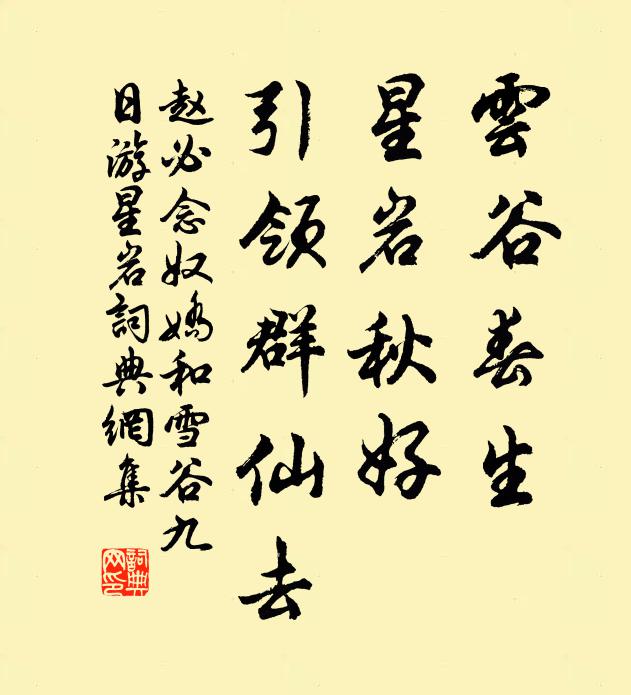 雲谷春生
星岩秋好
引領群仙去
赵必念奴嬌和雪谷九
日游星岩詞典網集
詞典網印